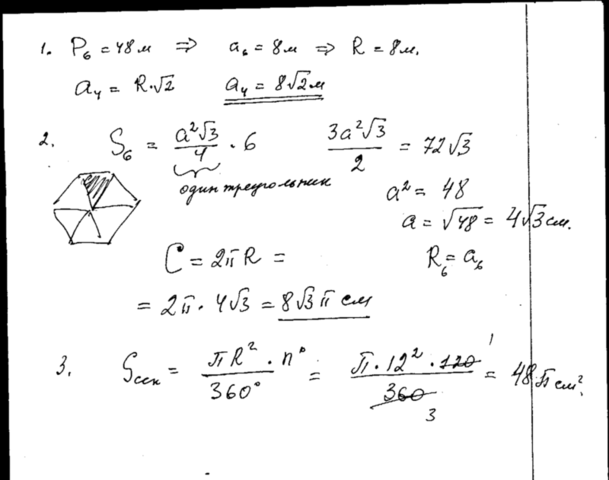 1. P₆ = 48м ⇒ a₆ = 8м ⇒ R = 8м.
a₄ = R·√2 a₄ = 8√2 м
2. S₆ = a²√3/4 · 6 3a²√3/2 = 72√3
один треугольник
a² = 48
a = √48 = 4√3 см.
C = 2πR = R₆ = a₆
= 2π · 4√3 = 8√3 π см
3. Sсек = πR² · n°/360° = π · 12² · 120/360 = 48π см².
1
3